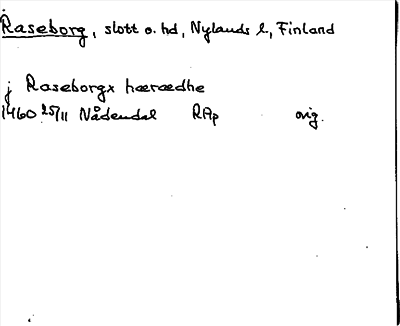 Raseborg, slott o. hd, Nylands l, Finland
j Raseborgx hæraedhe
1460 25/11 Nådendal RAp orig.